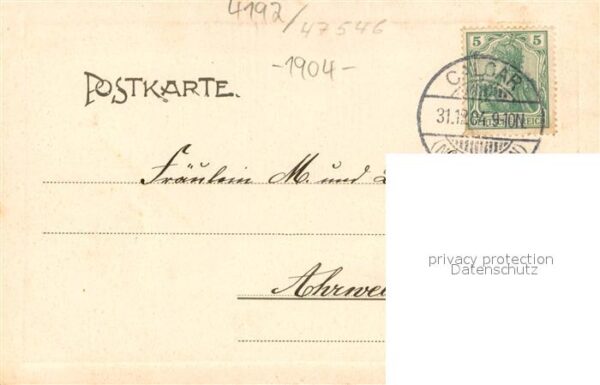 4192/47546
-1904-
POSTKARTE.
5 5
CALCAR
31.12.04.9-10N
Fräulein M. und
privacy protection
Datenschutz